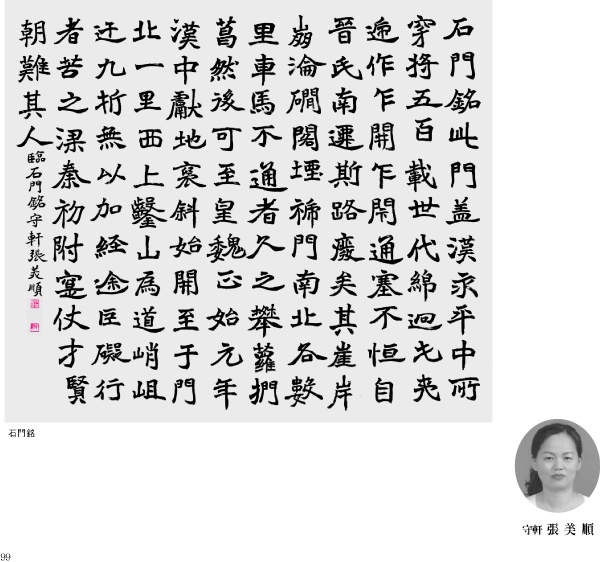 石門銘此門盖漢永平中所
穿将五百載世代綿迥戎夷
逓作乍開乍閇通塞不恒自
晉氏南遷斯路廢矣其崖岸
崩淪磵閣堙褫門南北各數
里車馬不通者久之攀蘿捫
葛然後可至皇魏正始元年
漢中獻地襃斜始開至于門
北一里西上鑿山為道峭岨
迂九折無以加経途巨礙行
者苦之梁秦初附寔仗才賢
朝難其人
臨石門銘守軒張美順
石門銘
守軒 張美順
99